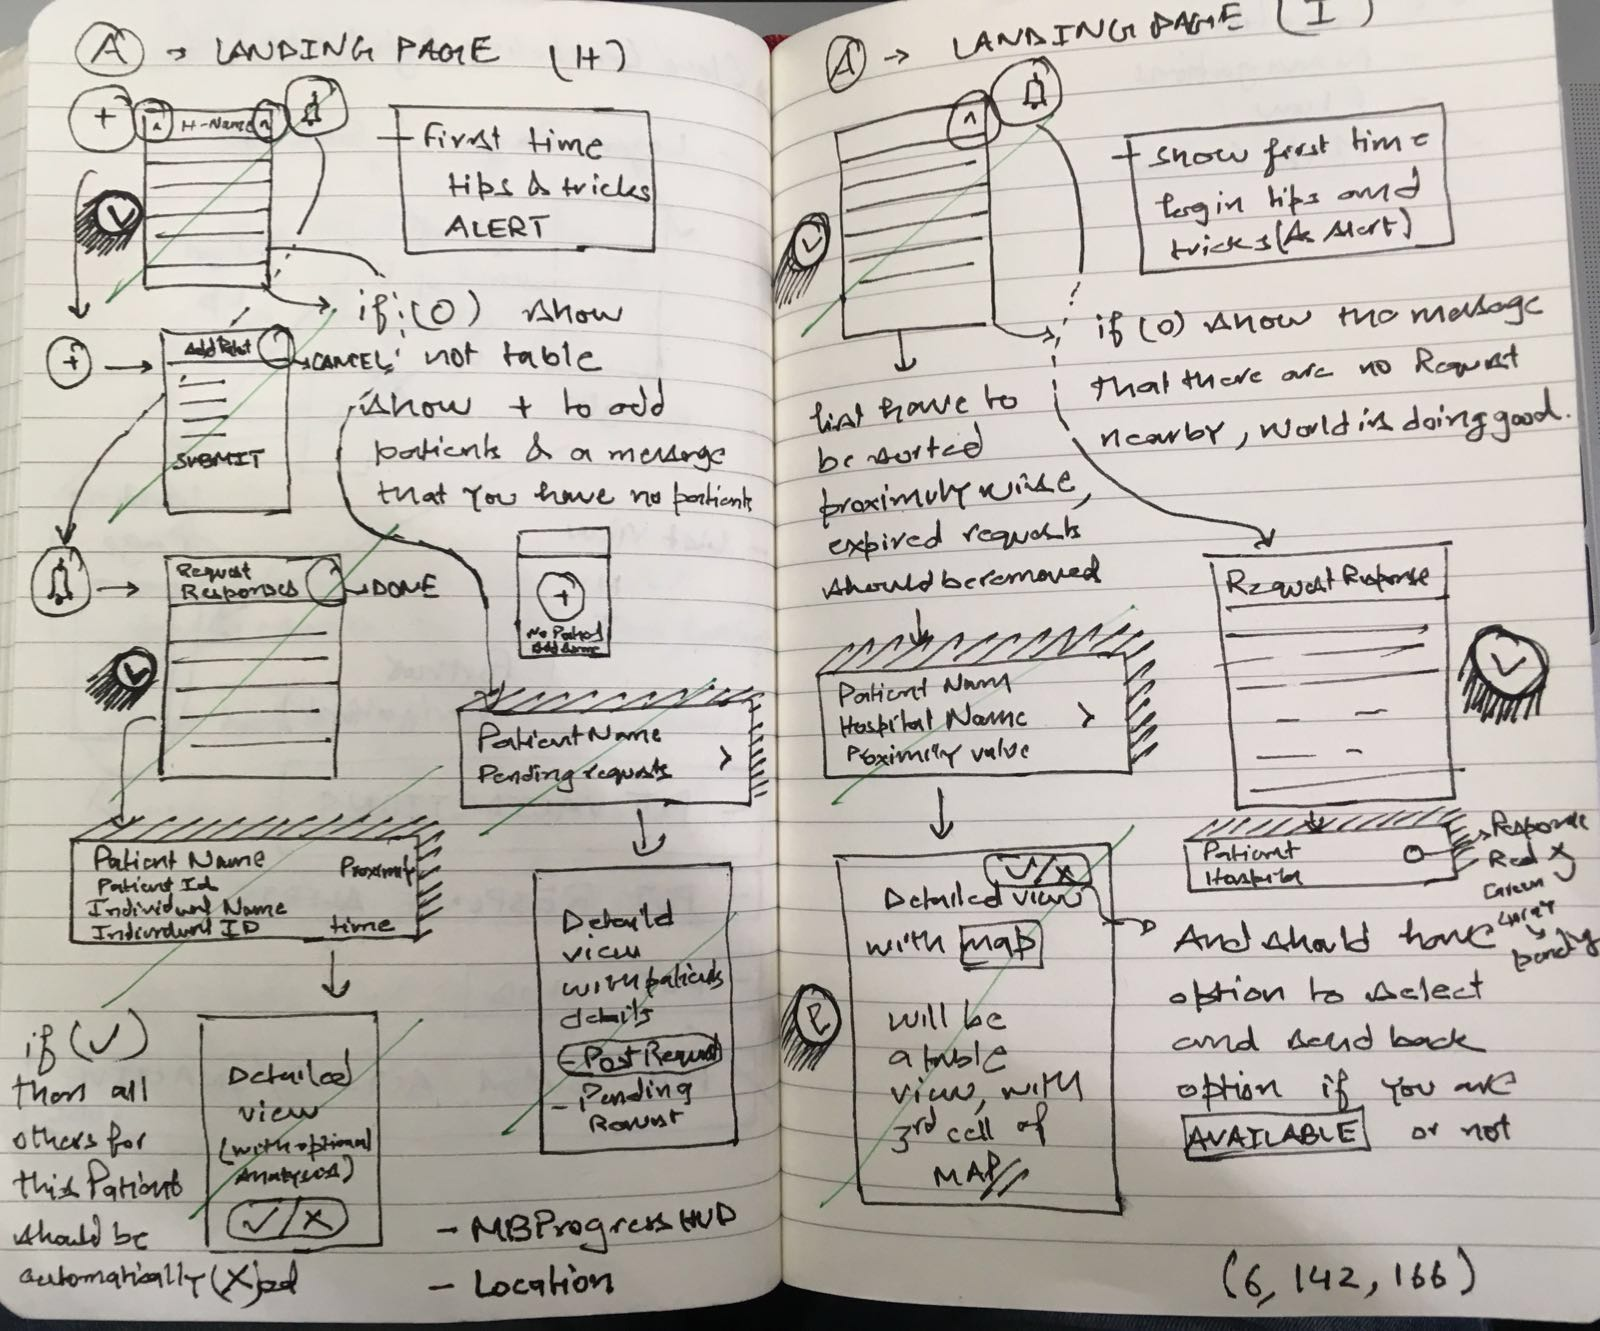 A → LANDING PAGE (H)
+
H-Name
First time
tips & tricks
ALERT
if (0) show
not table
show + to add
patients & a message
that you have no patients
+
Add
CANCEL
SUBMIT
Request
Responses
DONE
+
No Patient
Patient Name
Pending requests >
Patient Name
Patient Id
Individual Name
Individual ID
Proximity
time
Detailed
view
with patients
details
- Post Request
- Pending
Request
if (✓)
then all
others for
this Patient
should be
automatically (X)ed
Detailed
view
(with optional
✓/X
- MBProgressHUD
- Location
A → LANDING PAGE (I)
show first time
login tips and
tricks (As Alert)
if (0) show the message
that there are no Request
nearby, world is doing good.
list have to
be sorted
proximity wise,
expired requests
should be removed
Request Response
Patient Name
Hospital Name >
Proximity value
Patient
Hospital
Response
Red X
Green ✓
Detailed view
✓/X
with map
will be
a table
view, with
3rd cell of
MAP
And should have
option to select
and send back
option if you are
AVAILABLE or not
(6, 142, 166)